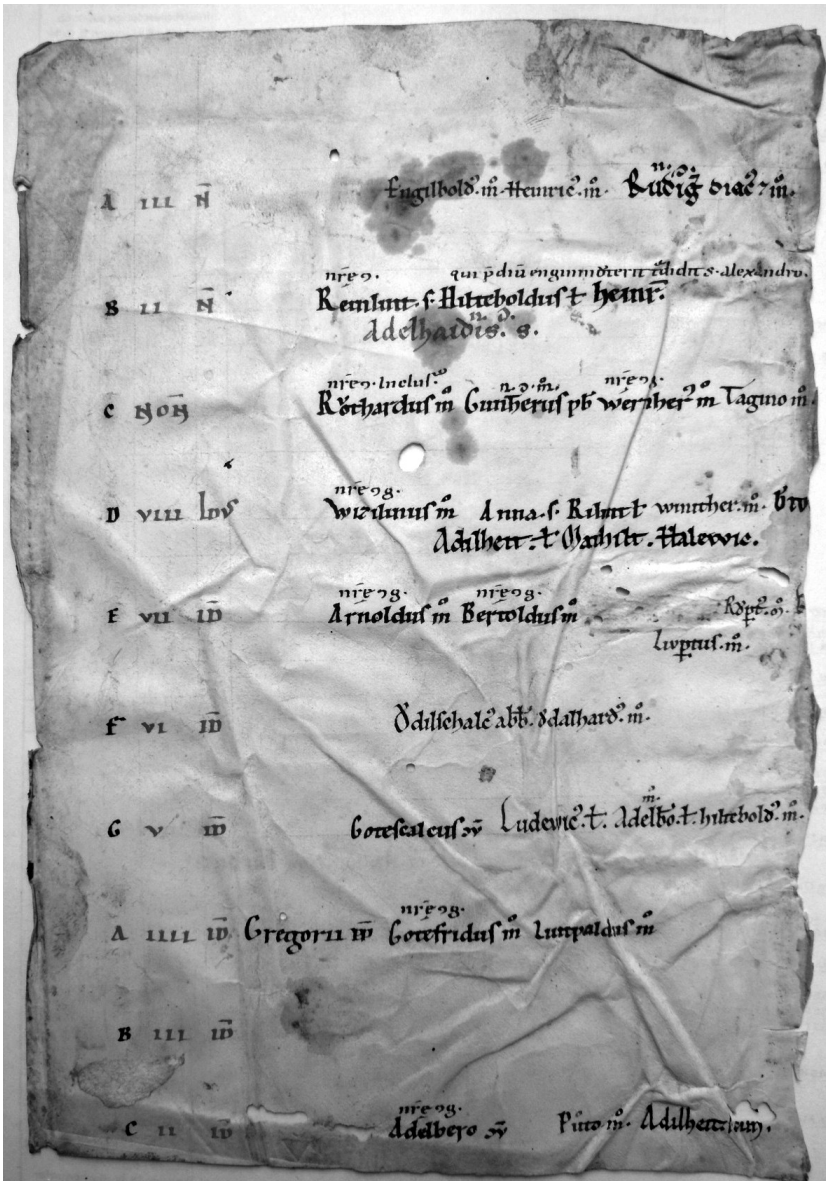 A III N̄ Engilbold᷒. m̊. Heinric᷒. m̊. Růdig̃ diac᷒ ⁊ m̊.
n̄re ꝯ. qui p̄diū tͣdidit s. alexandro.
B II N̄ Reinlint. s. Hilteboldus ł heinr̄.
n. ꝯ.
Adelhaidis. s.
n̄re ꝯ. Inclus᷒. n. ꝯ. m̊. n̄re ꝯg.
C NON̄ Rŏthardus m̊ Guntherus pb̄ Wernher᷒ m̊ Tagino m̊.
n̄re ꝯg.
D VIII IDVS Wizilinus m̊ Anna. s. Rihlint ł winther. m̊.
Adilheit. ł Mathilt. Halewic.
n̄re ꝯg. n̄re ꝯg.
E VII ID̄ Arnoldus m̊ Bertoldus m̊ Rŏpt᷒. m̊.
Livptus. m̊.
F VI ID̄ Ŏdilschalc᷒ abb̄. ŏdalhard᷒. m̊.
m̊.
G V ID̄ Gotescalcus Ludewic᷒. ł. Adelb̄o. ł. hiltebold᷒. m̊.
n̄re ꝯg.
A IIII ID̄ Gregorii p̄p̄ Gotefridus m̊ Liutpaldus m̊
B III ID̄
n̄re ꝯg.
C II ID̄ Adelbero Půto m̊. Adilheit laij.